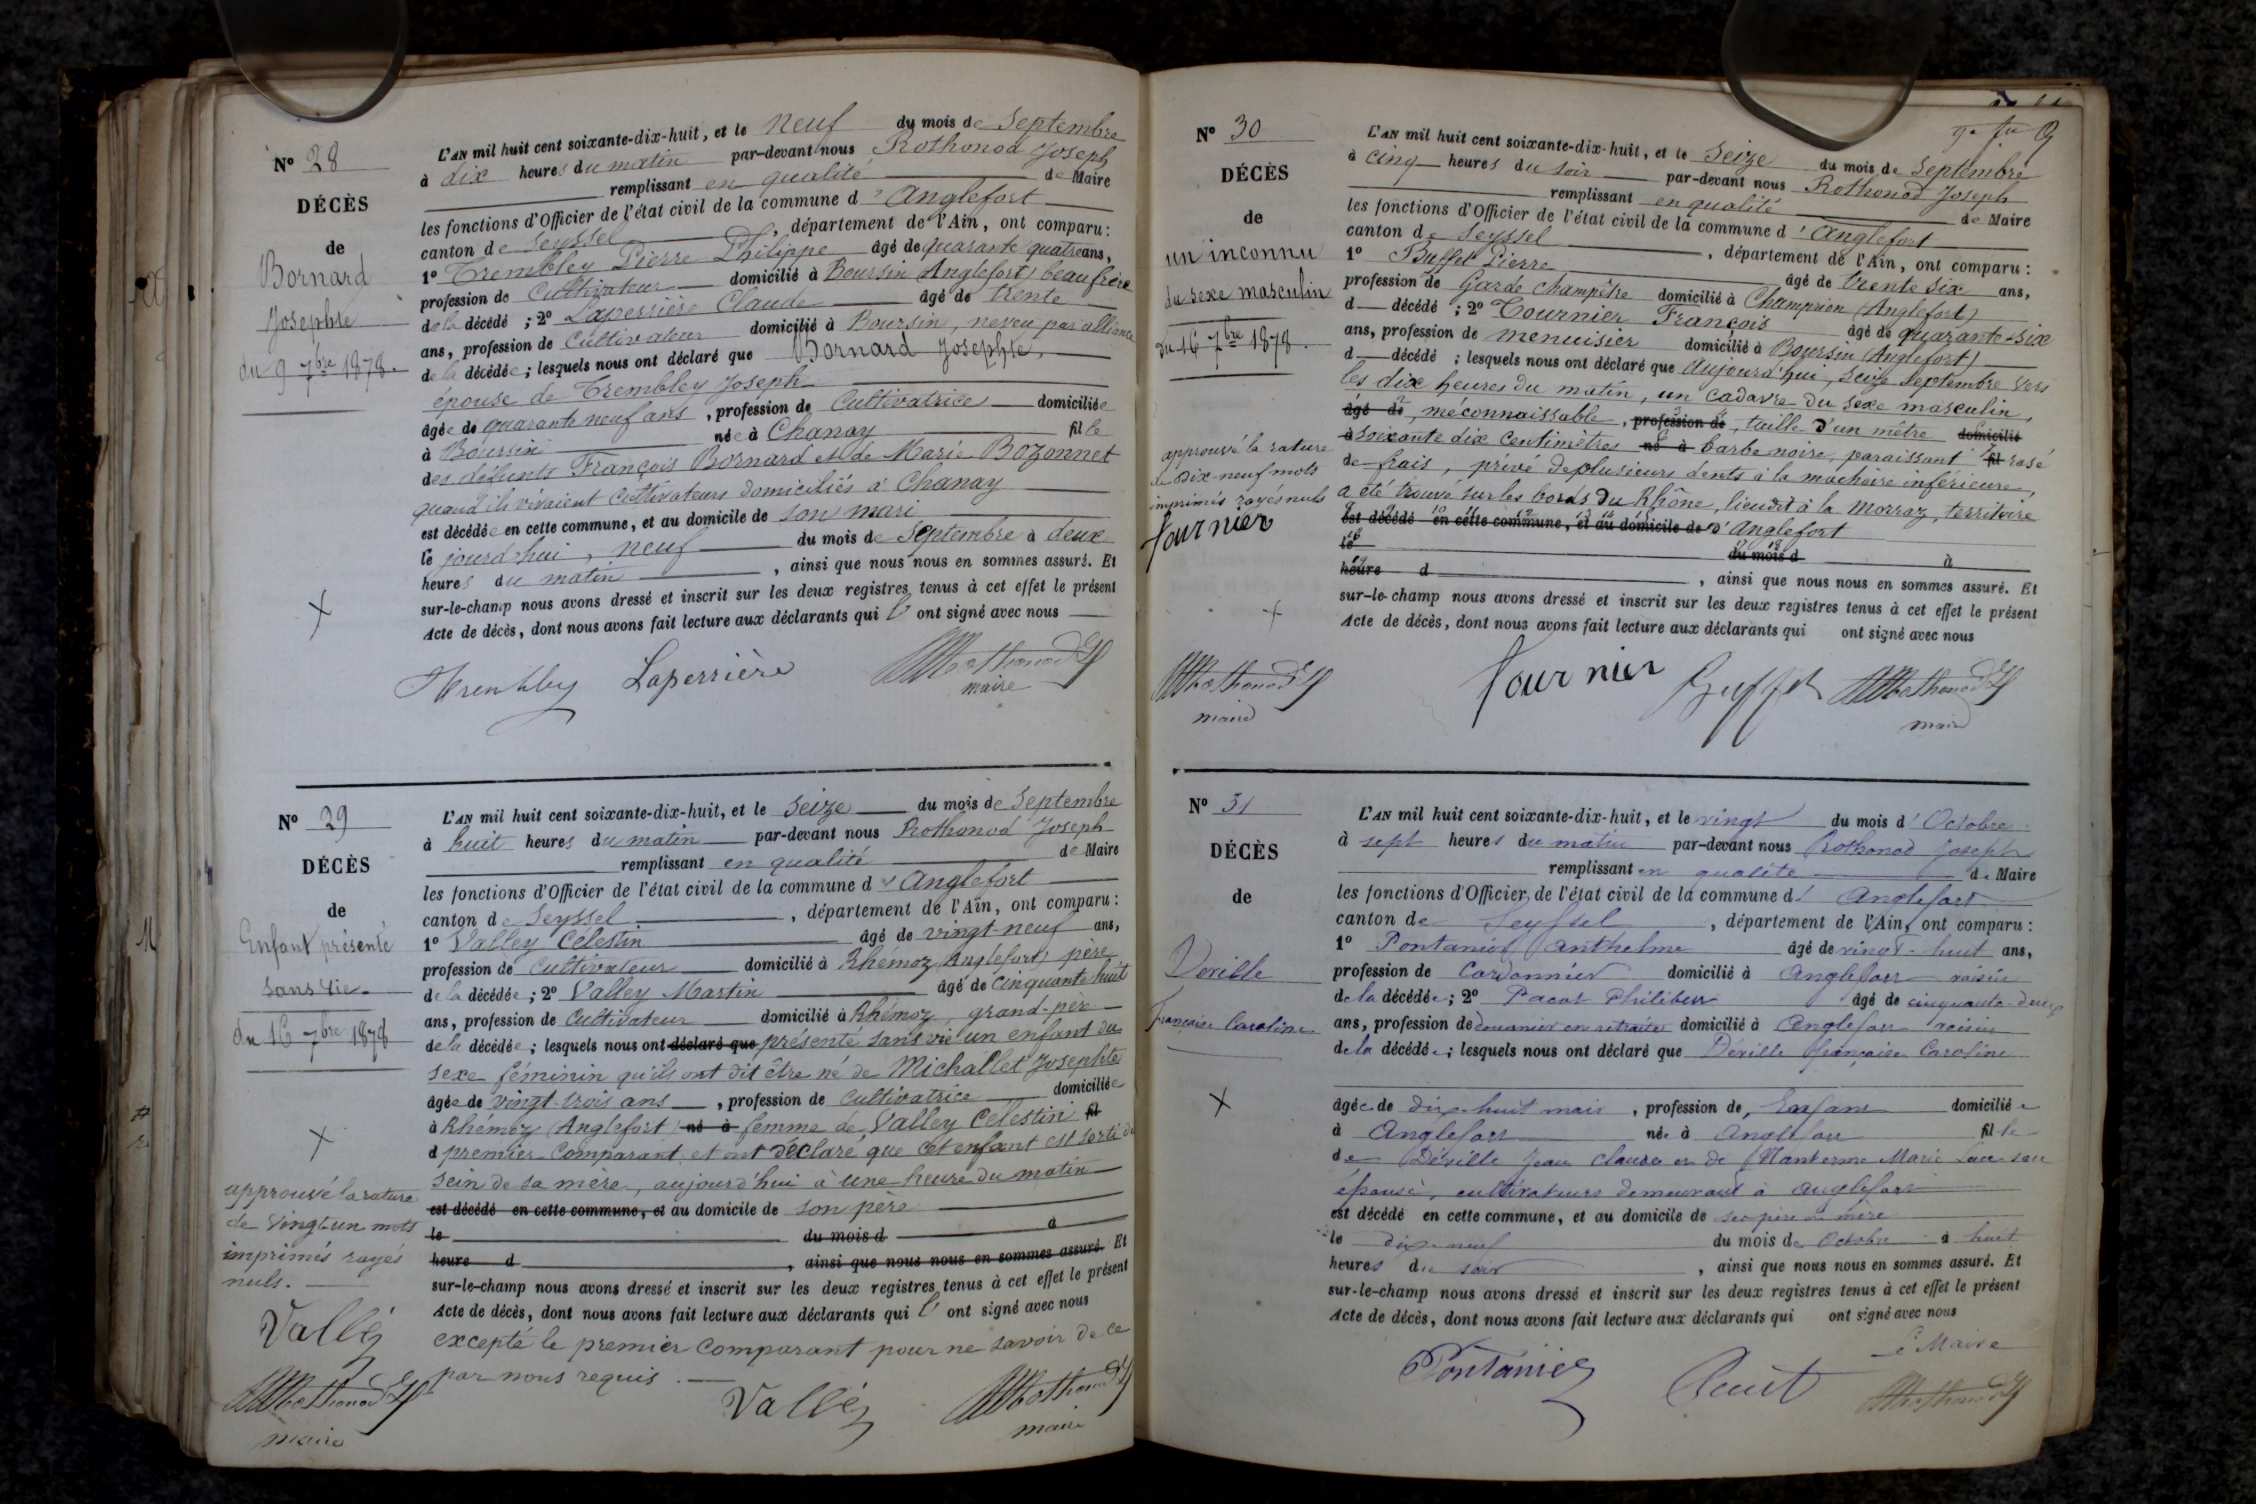 N° 28
DÉCÈS
de
Bornard
Josephte
du 9 7bre 1878.
L'AN mil huit cent soixante-dix-huit, et le neuf du mois de Septembre
à dix heures du matin par-devant nous Rothonod Joseph
remplissant en qualité de Maire
les fonctions d'Officier de l'état civil de la commune d'Anglefort
canton de Seyssel, département de l'Ain, ont comparu:
1° Trembley Pierre Philippe âgé de quarante quatre ans,
profession de Cultivateur domicilié à Boursin (Anglefort) beau frère
de la décédé; 2° Laperrière Claude âgé de trente
ans, profession de Cultivateur domicilié à Boursin, neveu par alliance
de la décédée; lesquels nous ont déclaré que Bornard Josephte,
épouse de Trembley Joseph
âgée de quarante neuf ans, profession de Cultivatrice domiciliée
à Boursin née à Chanay fille
des défunts François Bornard et de Marie Bozonnet
quand ils vivaient cultivateurs domiciliés à Chanay
est décédée en cette commune, et au domicile de son mari
le jourd'hui, neuf du mois de Septembre à deux
heures du matin, ainsi que nous nous en sommes assuré. Et
sur-le-champ nous avons dressé et inscrit sur les deux registres tenus à cet effet le présent
Acte de décès, dont nous avons fait lecture aux déclarants qui l'ont signé avec nous
Trembley Laperrière Rothonod
maire
N° 29
DÉCÈS
de
Enfant présenté
sans vie.
du 16 7bre 1878
approuvé la rature
de vingt un mots
imprimés rayés
nuls.
Valléy
Rothonod
maire
L'AN mil huit cent soixante-dix-huit, et le seize du mois de Septembre
à huit heures du matin par-devant nous Rothonod Joseph
remplissant en qualité de Maire
les fonctions d'Officier de l'état civil de la commune d'Anglefort
canton de Seyssel, département de l'Ain, ont comparu:
1° Valley Célestin âgé de vingt-neuf ans,
profession de Cultivateur domicilié à Rhémoz (Anglefort) père
de la décédée; 2° Valley Martin âgé de cinquante huit
ans, profession de Cultivateur domicilié à Rhémoz, grand-père
de la décédée; lesquels nous ont déclaré que présenté sans vie un enfant du
sexe féminin qu'ils ont dit être né de Michallet Josephte
âgée de vingt-trois ans, profession de Cultivatrice domiciliée
à Rhémoz (Anglefort) né à femme de Valley Célestin fil
d premier Comparant et ont déclaré que cet enfant est sorti du
sein de sa mère, aujourd'hui à une heure du matin
est décédé en cette commune, et au domicile de son père
le du mois d à
heure d, ainsi que nous nous en sommes assuré. Et
sur-le-champ nous avons dressé et inscrit sur les deux registres tenus à cet effet le présent
Acte de décès, dont nous avons fait lecture aux déclarants qui l'ont signé avec nous
excepté le premier comparant pour ne savoir de ce
par nous requis.
Valléy Rothonod
maire
N° 30
DÉCÈS
de
un inconnu
du sexe masculin
du 16 7bre 1878.
approuvé la rature
de Dix-neuf mots
imprimés rayés nuls
fournier
Rothonod
maire
L'AN mil huit cent soixante-dix-huit, et le Seize du mois de Septembre
à cinq heures du soir par-devant nous Rothonod Joseph
remplissant en qualité de Maire
les fonctions d'Officier de l'état civil de la commune d'Anglefort
canton de Seyssel, département de l'Ain, ont comparu:
1° Buffet Pierre âgé de trente six ans,
profession de Garde champêtre domicilié à Champrion (Anglefort)
d décédé; 2° Tournier François âgé de quarante-six
ans, profession de menuisier domicilié à Boursin (Anglefort)
d décédé; lesquels nous ont déclaré que Aujourd'hui, seize Septembre vers
les dix heures du matin, un cadavre du sexe masculin,
âgé de, méconnaissable, profession de, taille d'un mètre domicilié
à soixante dix Centimètres né à barbe noire, paraissant fil rasé
de frais, privé de plusieurs dents à la machoire inférieure,
a été trouvé sur les bords du Rhône, lieu dit à la Morraz, territoire
est décédé en cette commune, et au domicile de d'Anglefort
le du mois d à
heure d, ainsi que nous nous en sommes assuré. Et
sur-le-champ nous avons dressé et inscrit sur les deux registres tenus à cet effet le présent
Acte de décès, dont nous avons fait lecture aux déclarants qui ont signé avec nous
fournier Buffet Rothonod
maire
N° 31
DÉCÈS
de
Deville
Françoise Caroline
L'AN mil huit cent soixante-dix-huit, et le vingt du mois d'Octobre
à sept heures du matin par-devant nous Rothonod Joseph
remplissant en qualité de Maire
les fonctions d'Officier de l'état civil de la commune d'Anglefort
canton de Seyssel, département de l'Ain, ont comparu:
1° Pontanier Anthelme âgé de vingt-huit ans,
profession de Cordonnier domicilié à Anglefort voisin
de la décédée; 2° Pacot Philibert âgé de cinquante-deux
ans, profession de douanier en retraite domicilié à Anglefort voisin
de la décédée; lesquels nous ont déclaré que Déville françoise Caroline
âgée de dix-huit mois, profession de, Enfant domiciliée
à Anglefort née à Anglefort fille
de Déville Jean Claude et de Nanterme Marie son
épouse, cultivateurs demeurant à Anglefort
est décédé en cette commune, et au domicile de ses père et mère
le dix-neuf du mois de Octobre à huit
heures du soir, ainsi que nous nous en sommes assuré. Et
sur-le-champ nous avons dressé et inscrit sur les deux registres tenus à cet effet le présent
Acte de décès, dont nous avons fait lecture aux déclarants qui ont signé avec nous
Le Maire
Pontanier Rothonod